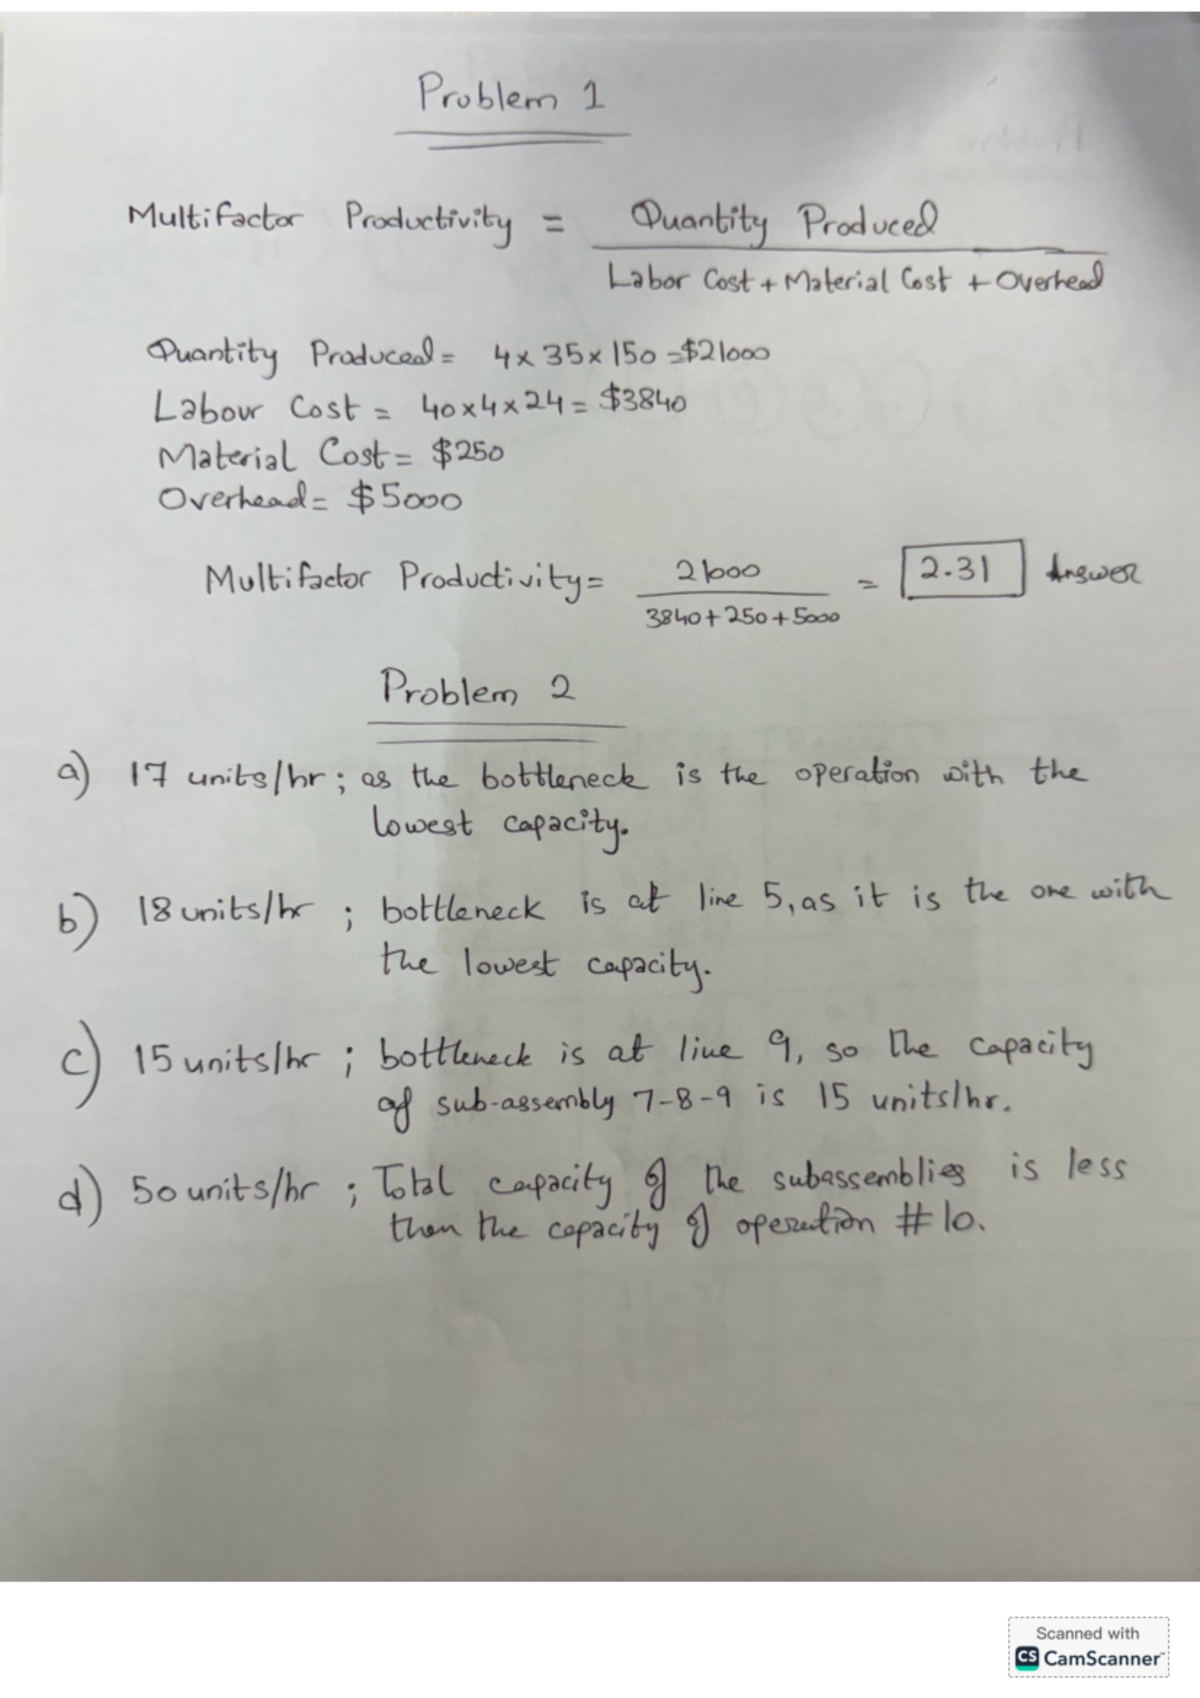 Problem 1
Multifactor Productivity = Quantity Produced
Labor Cost + Material Cost + Overhead
Quantity Produced = 4 x 35 x 150 = $21000
Labour Cost = 40 x 4 x 24 = $3840
Material Cost = $250
Overhead = $5000
Multifactor Productivity = 21000 = 2.31 Answer
3840 + 250 + 5000
Problem 2
a) 17 units/hr ; as the bottleneck is the operation with the
lowest capacity.
b) 18 units/hr ; bottleneck is at line 5, as it is the one with
the lowest capacity.
c) 15 units/hr ; bottleneck is at line 9, so the capacity
of sub-assembly 7-8-9 is 15 units/hr.
d) 50 units/hr ; Total capacity of the subassemblies is less
than the capacity of operation #10.
Scanned with
CS CamScanner